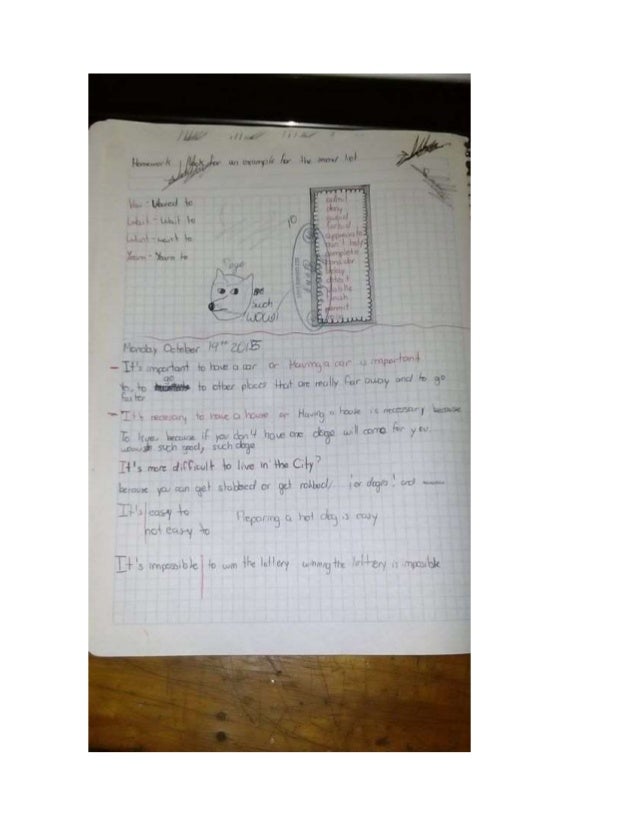 Homework for an example for the
to
Wait - Wait to
Want - want to
Yearn - Yearn to
admit
deny
avoid
forbid
appreciate
can't help
complete
consider
delay
detest
dislike
finish
permit
Doge
such
WOW!
Monday October 19th 2015
- It's important to have a car or Having a car is important
to go to other places that are really far away and to go
faster
- It's necessary to have a house or Having a house is necessary because
To live, because if you don't have one doge will come for you.
such good, such doge
It's more difficult to live in the City?
because you can get stabbed or get robbed, ¡or doges! and
It's easy to
not easy to
Preparing a hot dog is easy
It's impossible to win the lottery winning the lottery is impossible